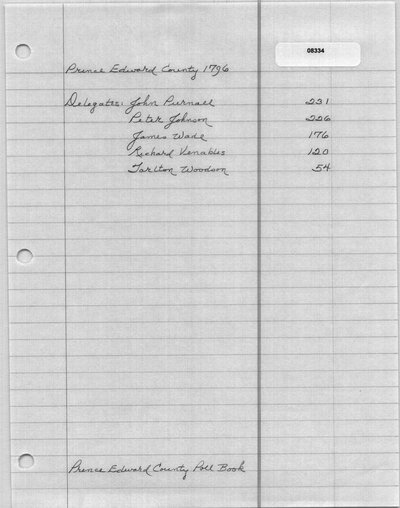 08334
Prince Edward County 1796
Delegates: John Purnall 231
Peter Johnson 226
James Wade 176
Richard Venables 120
Tarlton Woodson 54
Prince Edward County Poll Book